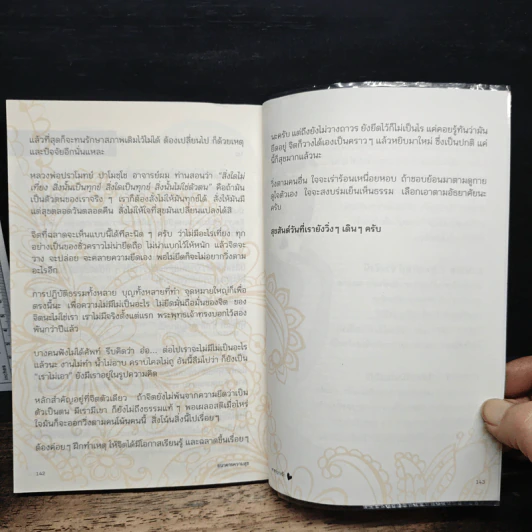 แล้วที่สุดก็จะทนรักษาสภาพเดิมไว้ไม่ได้ ต้องเปลี่ยนไป ก็ด้วยเหตุ
และปัจจัยอีกนั่นแหละ
หลวงพ่อปราโมทย์ ปาโมชฺโช อาจารย์ผม ท่านสอนว่า "สิ่งใดไม่
เที่ยง สิ่งนั้นเป็นทุกข์ สิ่งใดเป็นทุกข์ สิ่งนั้นไม่ใช่ตัวตน" คือถ้ามัน
เป็นตัวตนของเราจริง ๆ เราก็ต้องสั่งไม่ให้มันทุกข์ได้ สั่งให้มันมี
แต่สุขตลอดวันตลอดคืน สั่งไม่ให้ใจที่สุขมันเปลี่ยนแปลงได้สิ
จิตที่ฉลาดจะเห็นแบบนี้ได้ทีละนิด ๆ ครับ ว่าไม่มีอะไรเที่ยง ทุก
อย่างเป็นของชั่วคราวไม่น่ายึดถือ ไม่น่าแบกไว้ให้หนัก แล้วจิตจะ
วาง จะปล่อย จะคลายความยึดเอง พอไม่ยึดก็จะไม่อยากวิ่งตาม
อะไรอีก
การปฏิบัติธรรมทั้งหลาย บุญทั้งหลายที่ทำ จุดหมายใหญ่ก็เพื่อ
ตรงนี้นะ เพื่อความไม่มีไม่เป็นอะไร ไม่ยึดมั่นถือมั่นของจิต ของ
จิตนะไม่ใช่เรา เราไม่มีจริงตั้งแต่แรก พระพุทธเจ้าทรงบอกไว้สอง
พันกว่าปีแล้ว
บางคนฟังไม่ได้ศัพท์ รีบคิดว่า อ๋อ... ต่อไปเราจะไม่มีไม่เป็นอะไร
แล้วนะ งานไม่ทำ น้ำไม่อาบ คราบไคลไม่ถู อันนี้ลืมไปว่า ก็ยังเป็น
"เราไม่เอา" ยังมีเราอยู่ในรูปความคิด
หลักสำคัญอยู่ที่จิตตัวเดียว ถ้าจิตยังไม่พ้นจากความยึดว่าเป็น
ตัวเป็นตน มีเรามีเขา ก็ยังไม่ถึงธรรมแท้ ๆ พอเผลอสติเมื่อไหร่
ใจมันก็จะออกวิ่งตามคนโน้นคนนี้ สิ่งโน้นสิ่งนี้ไปเรื่อยๆ
ต้องค่อยๆ ฝึกทำเหตุ ให้จิตได้มีโอกาสเรียนรู้ และฉลาดขึ้นเรื่อยๆ
142
นะครับ แต่ถึงยังไม่วางถาวร ยังยึดไว้ก็ไม่เป็นไร แค่คอยรู้ทันว่ามัน
ยึดอยู่ จิตก็วางได้เองเป็นคราวๆ แล้วหยิบมาใหม่ ซึ่งเป็นปกติ แค่
นี้ก็สุขมากแล้วนะ
วิ่งตามคนอื่น ใจจะเร่าร้อนเหนื่อยหอบ ถ้าชอบย้อนมาตามดูกาย
ดูใจตัวเอง ใจจะสงบร่มเย็นเห็นธรรม เลือกเอาตามอัธยาศัยนะ
ครับ
สุขสันต์วันที่เรายังวิ่งๆ เดินๆ ครับ
143